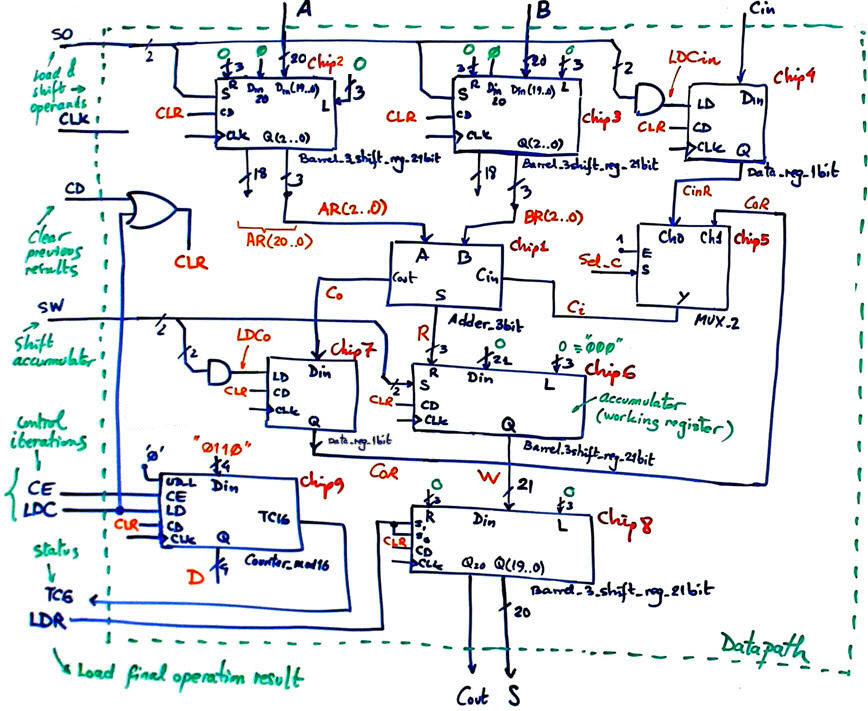 A
B
Cin
SO
2
2
LDCin
load & shift operands
CLK
0
3
0
20
Chip2
0
3
S R Din 20 Din(19..0) L
CD
CLK Q(2..0)
CLR
Barrel_3_shift_reg_21bit
18
3
0
3
0
20
0
3
S R Din 20 Din(19..0) L
CD
CLK Q(2..0)
CLR
Chip3
Barrel_3shift_reg_21bit
18
3
Chip4
LD Din
CD
CLK Q
CLR
Data_reg_1bit
CD
Clear previous results
CLR
AR(2..0)
AR(20..0)
BR(2..0)
CinR
CoR
Chip1
A B
Cout Cin
S
Adder_3bit
Chip5
1
Ch0 Ch1
E
S
Y
Sel_C
MUX_2
Co
Ci
SW
Shift accumulator
2
2
LDCo
Chip7
Din
LD
CD
CLK
Q
CLR
Data_reg_1bit
R
3
0
21
0="000"
3
2
Chip6
R Din L
S
CD
CLK
Q
CLR
accumulator
(working register)
Barrel_3shift_reg_21bit
CoR
W
21
control iterations
CE
LDC
'0'
"0110"
4
Chip9
UD_L Din
CE
LD TC16
CD
CLK Q
CLR
Counter_mod16
D
4
0
3
0
3
Chip8
R Din L
S1
S0
CD
CLK
Q20 Q(19..0)
CLR
Barrel_3_shift_reg_21bit
20
status
TC6
LDR
Load final operation result
Datapath
Cout S